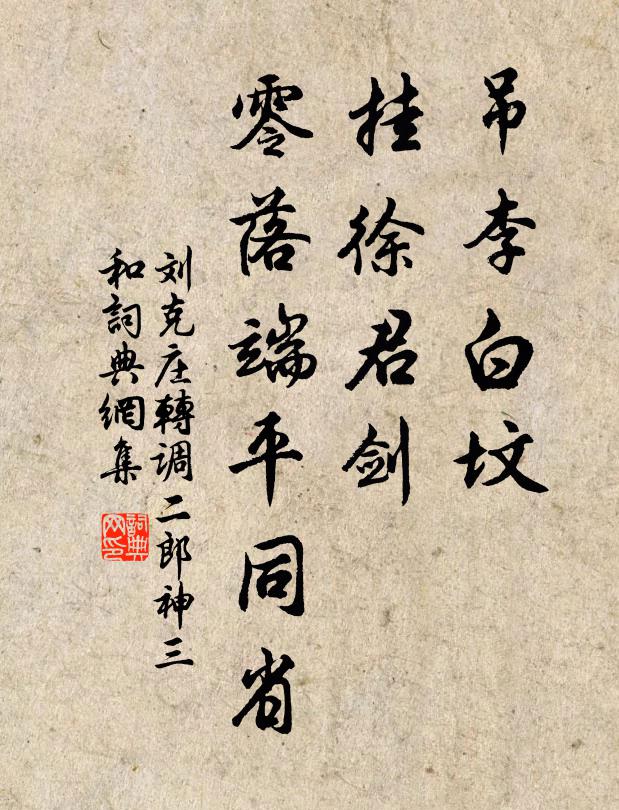 吊李白坟
挂徐君剑
零落端平同省
刘克庄轉调二郎神三
和詞典網集
詞典网印